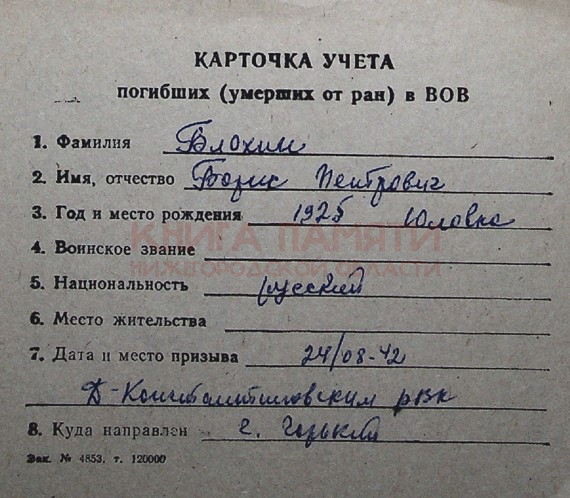 КАРТОЧКА УЧЕТА
погибших (умерших от ран) в ВОВ
1. Фамилия Блохин
2. Имя, отчество Борис Петрович
3. Год и место рождения 1925 Юловка
КНИГА ПАМЯТИ
4. Воинское звание
НИЖЕГОРОДСКОЙ ОБЛАСТИ
5. Национальность русский
6. Место жительства
7. Дата и место призыва 24/08-42
Д-Константиновским рвк
8. Куда направлен г. Горький
Зак. № 4853, т. 120000